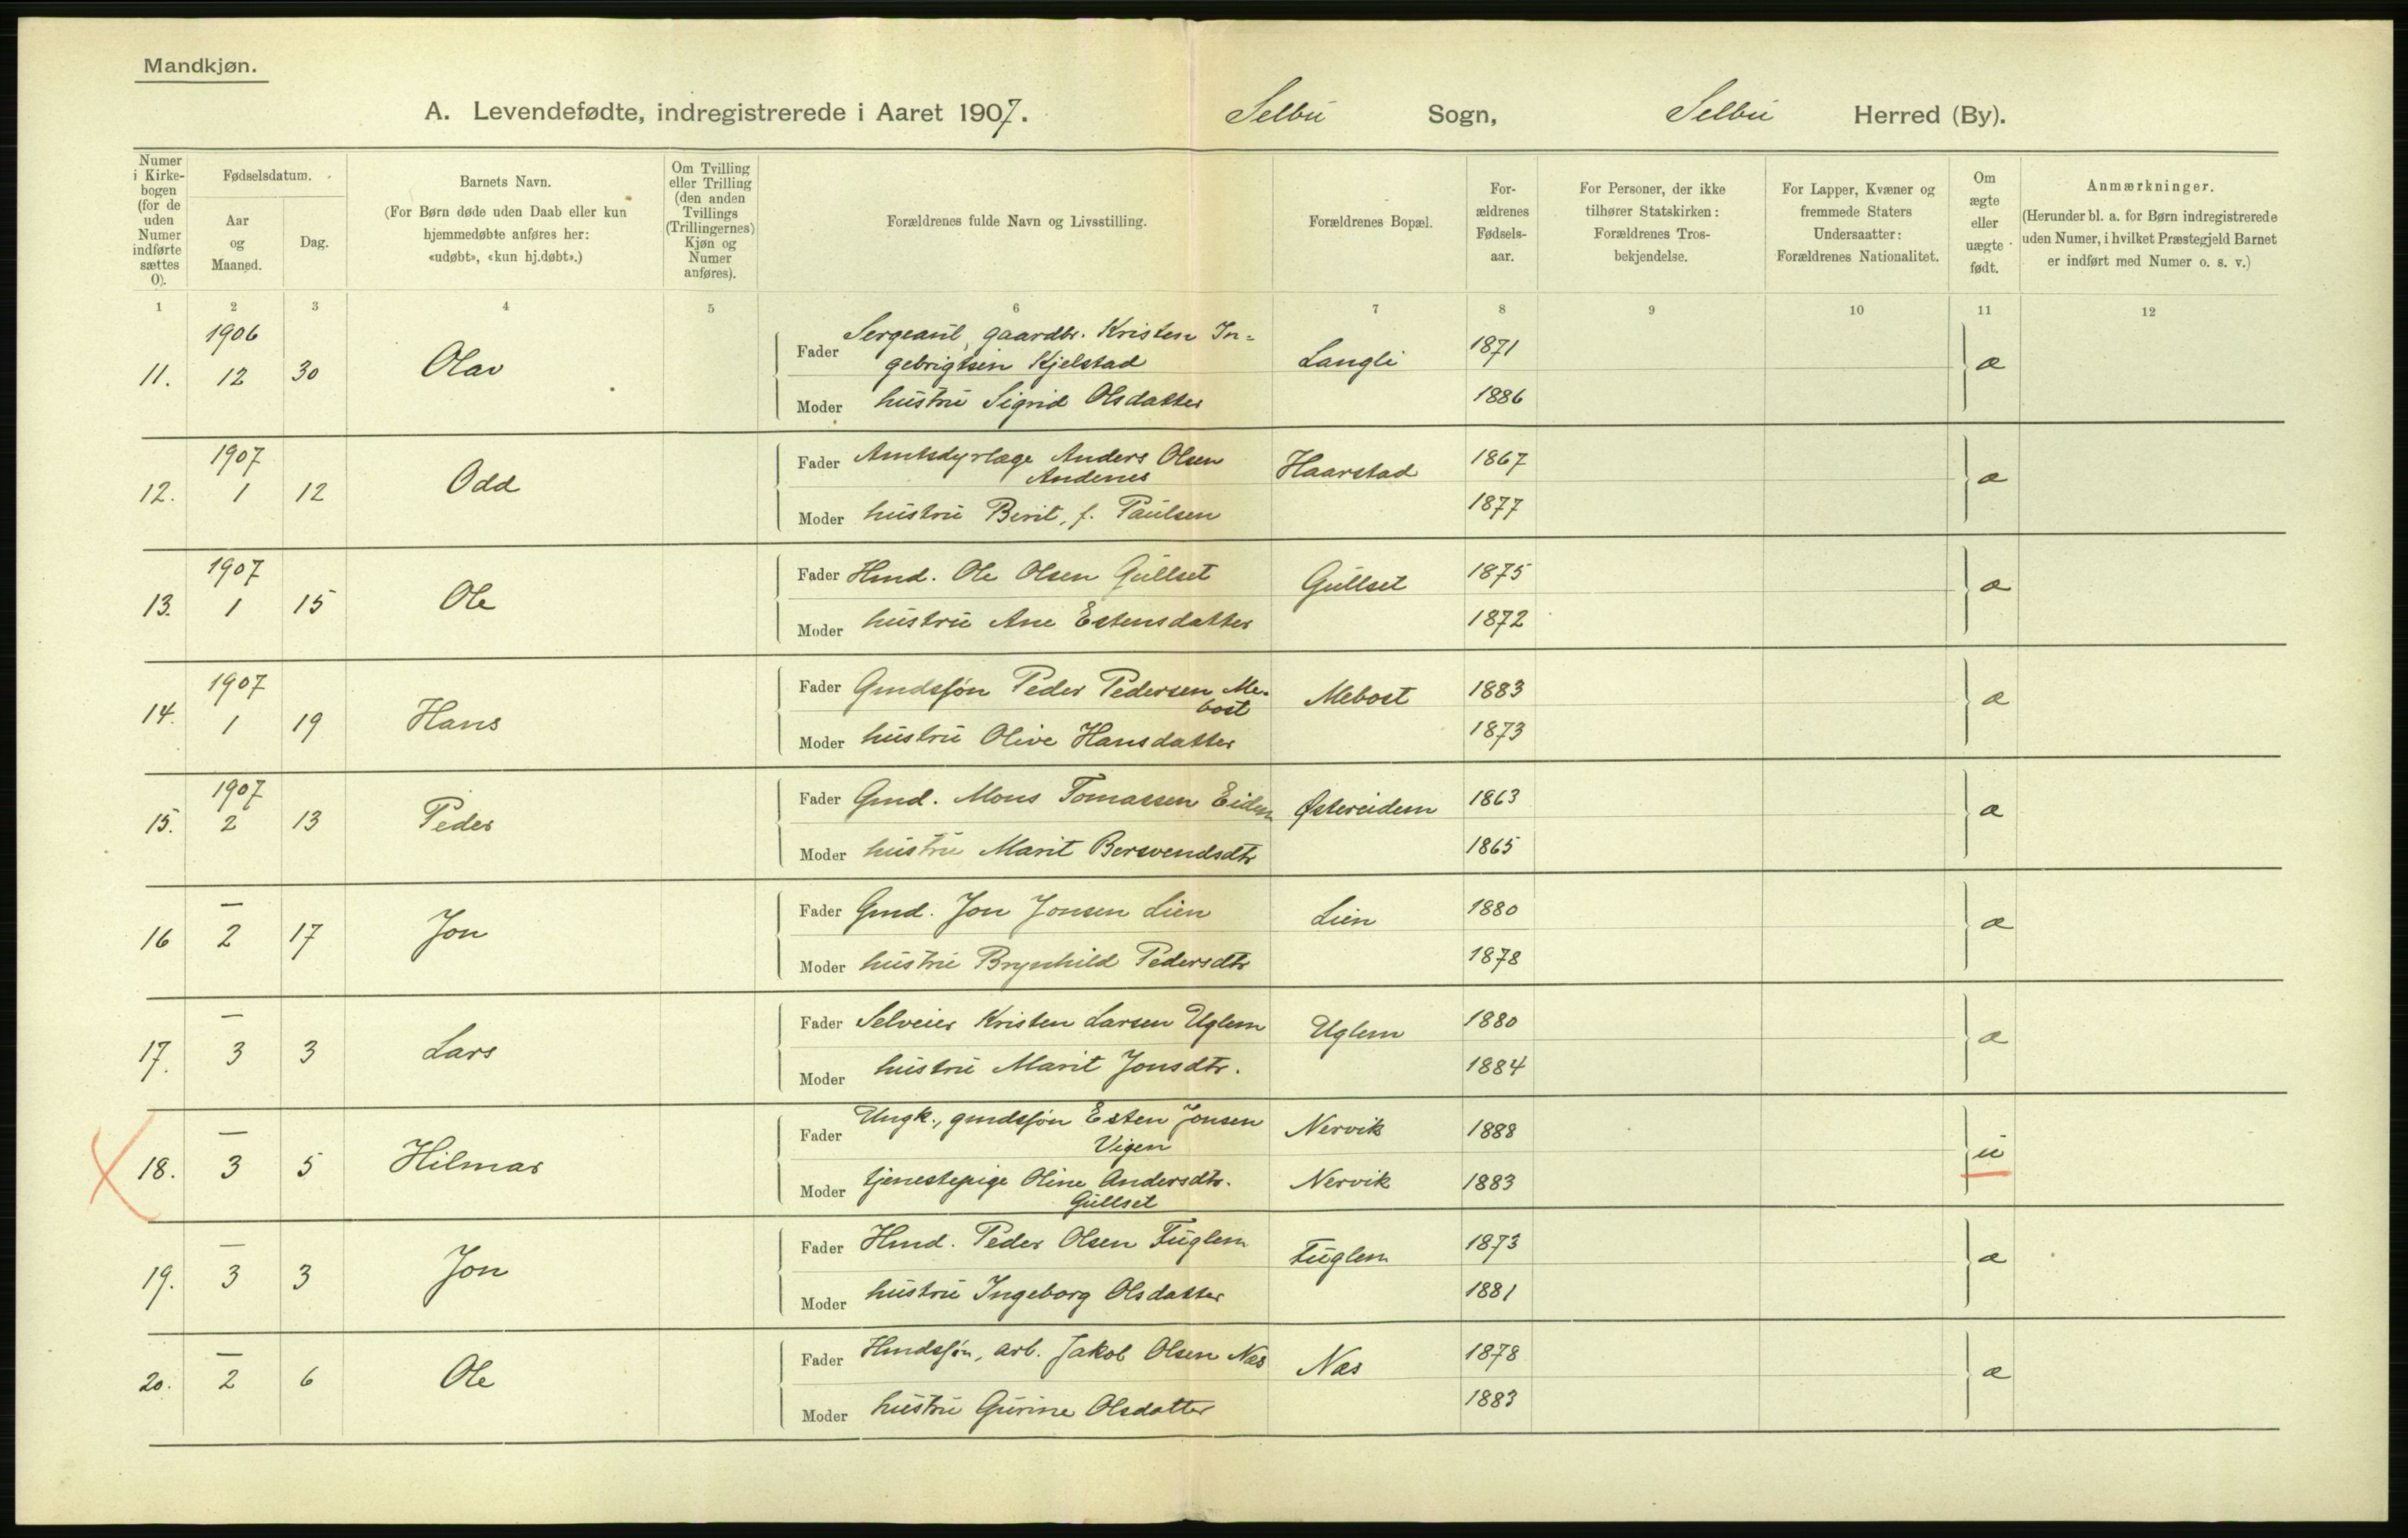 Mandkjøn.
A. Levendefødte, indregistrerede i Aaret 1907. Selbu Sogn, Selbu Herred (By).
Numer i Kirkebogen (for de uden Numer indførte sættes 0).
Fødselsdatum.
Aar og Maaned.
Dag.
Barnets Navn.
(For Børn døde uden Daab eller kun
hjemmedøbte anføres her:
«udøbt», «kun hj.døbt».)
Om Tvilling
eller Trilling
(den anden
Tvillings
(Trillingernes)
Kjøn og
Numer
anføres).
Forældrenes fulde Navn og Livsstilling.
Forældrenes Bopæl.
For-
ældrenes
Fødsels-
aar.
For Personer, der ikke
tilhører Statskirken:
Forældrenes Tros-
bekjendelse.
For Lapper, Kvæner og
fremmede Staters
Undersaatter:
Forældrenes Nationalitet.
Om
ægte
eller
uægte
født.
Anmærkninger.
(Herunder bl. a. for Børn indregistrerede
uden Numer, i hvilket Præstegjeld Barnet
er indført med Numer o. s. v.)
1 2 3 4 5 6 7 8 9 10 11 12
1906
11. 12 30 Olav
Fader Sergeant, gaardbr. Kristen In=
gebrigtsen Kjelstad Langli 1871 æ
Moder hustru Sigrid Olsdatter 1886
1907
12. 1 12 Odd
Fader Amtsdyrlæge Anders Olsen
Andenes Haarstad 1867 æ
Moder hustru Berit, f. Paulsen 1877
1907
13. 1 15 Ole
Fader Hmd. Ole Olsen Gullset Gullset 1875 æ
Moder hustru Ane Estensdatter 1872
1907
14. 1 19 Hans
Fader Gmdsføn Peder Pedersen Me-
bost Mebost 1883 æ
Moder hustru Olive Hansdatter 1873
1907
15. 2 13 Peder
Fader Gmd. Mons Tomassen Eidem Østereidem 1863 æ
Moder hustru Marit Bersvendsdtr 1865
—
16 2 17 Jon
Fader Gmd. Jon Jonsen Lien Lien 1880 æ
Moder hustru Brynhild Pedersdtr 1878
—
17. 3 3 Lars
Fader Selveier Kristen Larsen Uglem Uglem 1880 æ
Moder hustru Marit Jonsdtr. 1884
—
18. 3 5 Hilmar
Fader Ungk., gmdsføn Esten Jonsen
Vigen Nervik 1888 u
Moder tjenestepige Oline Andersdtr.
Gullset Nervik 1883
—
19. 3 3 Jon
Fader Hmd. Peder Olsen Fuglem Fuglem 1873 æ
Moder hustru Ingeborg Olsdatter 1881
—
20. 2 6 Ole
Fader Hmdsføn, arb. Jakob Olsen Næs Næs 1878 æ
Moder hustru Gurine Olsdatter 1883